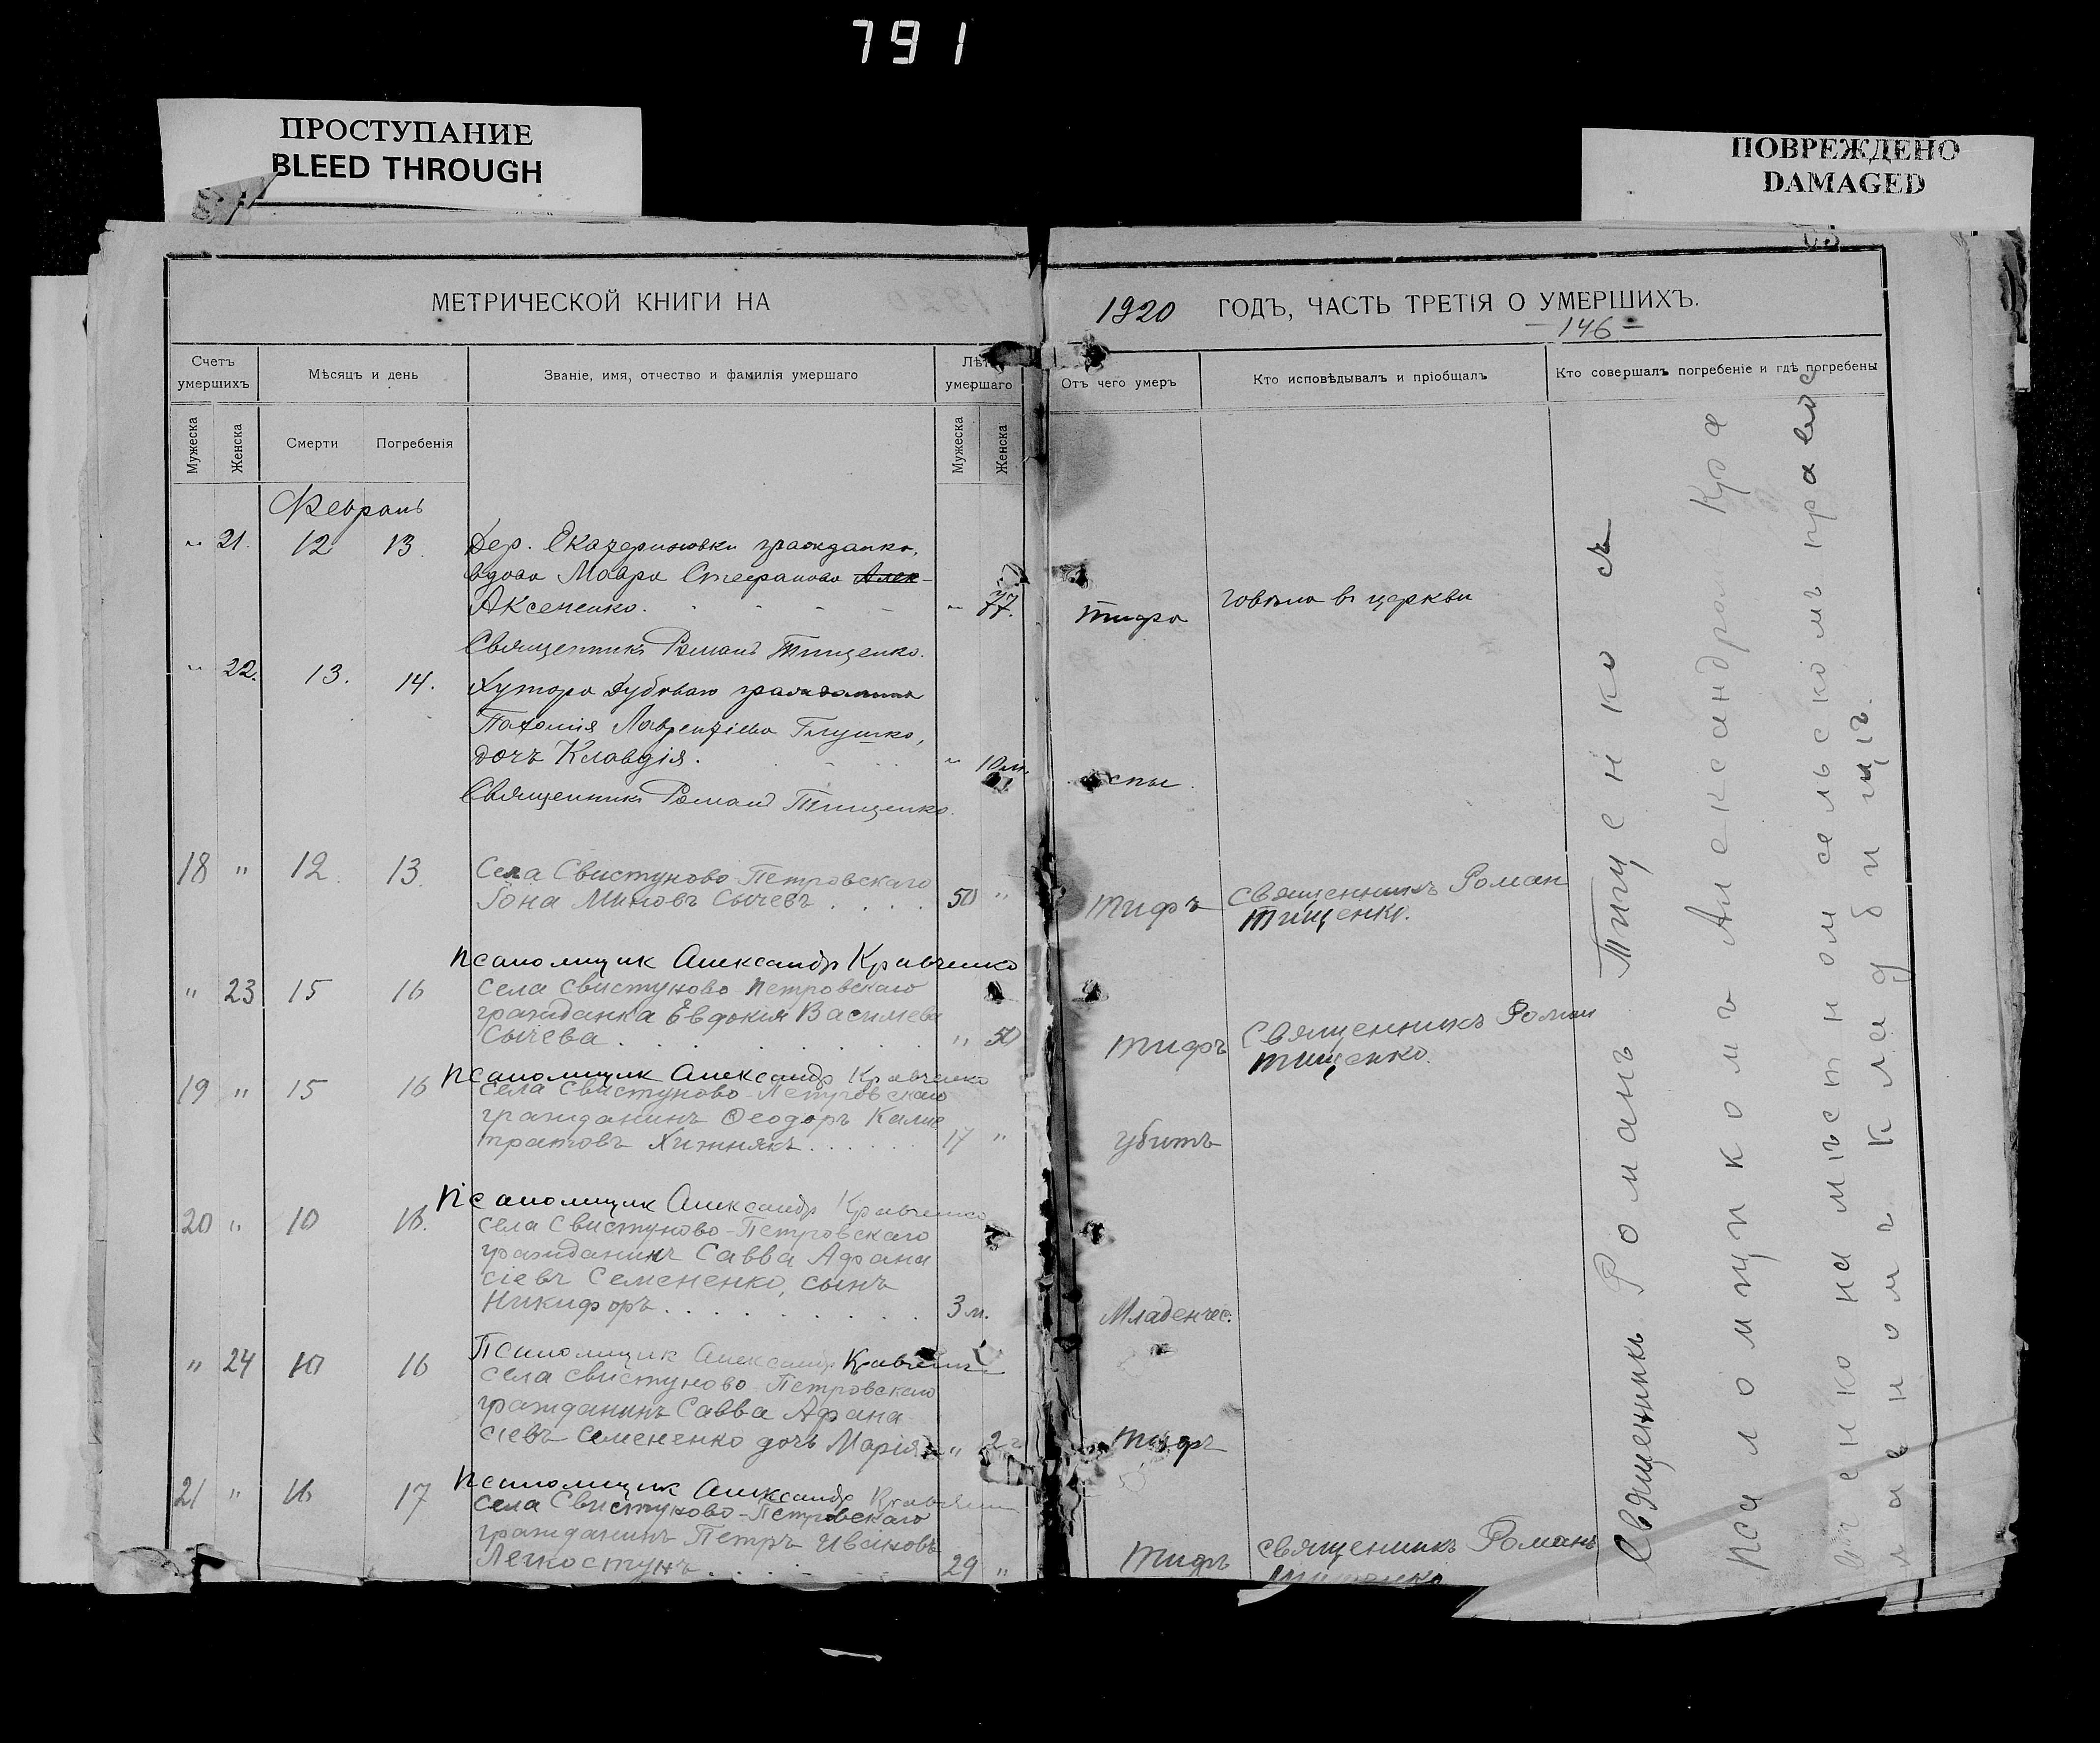 791
ПРОСТУПАНИЕ
BLEED THROUGH
ПОВРЕЖДЕНО
DAMAGED
МЕТРИЧЕСКОЙ КНИГИ НА 1920 ГОДЪ, ЧАСТЬ ТРЕТІЯ О УМЕРШИХЪ.
- 146 -
Счетъ умершихъ
Мѣсяцъ и день
Званіе, имя, отчество и фамилія умершаго
Лѣта умершаго
Отъ чего умеръ
Кто исповѣдывалъ и пріобщалъ
Кто совершалъ погребеніе и гдѣ погребены
Мужеска
Женска
Смерти
Погребенія
Мужеска
Женска
Февраль
" 21. 12 13. Дер. Екатериновки гражданка,
вдова Мавра Стефанова Алек-
Аксененко. " 77. тифа говѣла въ церкви
Священникъ Романъ Тищенко.
" 22. 13. 14. Хутора Дубоваго гражданина
Пахомія Лаврентіева Глушко,
дочь Клавдія. " 10 м. оспы.
Священникъ Романъ Тищенко.
18 " 12. 13. Села Свистуново-Петровскаго
Іона Миновъ Сычевъ . . . . 50 " тифъ священникъ Роман
тищенко.
Псаломщик Александр Кравченко
" 23 15 16 села Свистуново-Петровскаго
гражданка Евдокия Василева
Сычева . . . . . . " 50 тифъ Священникъ Роман
тищенко.
Псаломщик Александр Кравченко
19 " 15 16 села Свистуново-Петровскаго
гражданинъ Ѳеодоръ Калис
тратовъ Хижнякъ . . . . . 17 " убитъ
Псаломщик Александр Кравченко
20 " 10 16. села Свистуново-Петровскаго
гражданинъ Савва Афана
сіевъ Семененко, сынъ
Никифоръ . . . . . . . . . 3 м. Младенчес.
Псаломщик Александр Кравченко
" 24 10 16 села Свистуново-Петровскаго
гражданинъ Савва Афана
сіевъ Семененко дочь Марія " 2 г тифъ
Псаломщик Александр Кравченко
21 " 16 17 села Свистуново-Петровскаго
гражданинъ Петръ Ивановъ
Легкоступъ . . . . . 29 " тифъ священникъ Романъ
тищенко
Священникъ Романъ Тищенко съ
псаломщикомъ Александромъ Кра
вченко на мѣстномъ сельскомъ правос
лавномъ кладбищѣ.